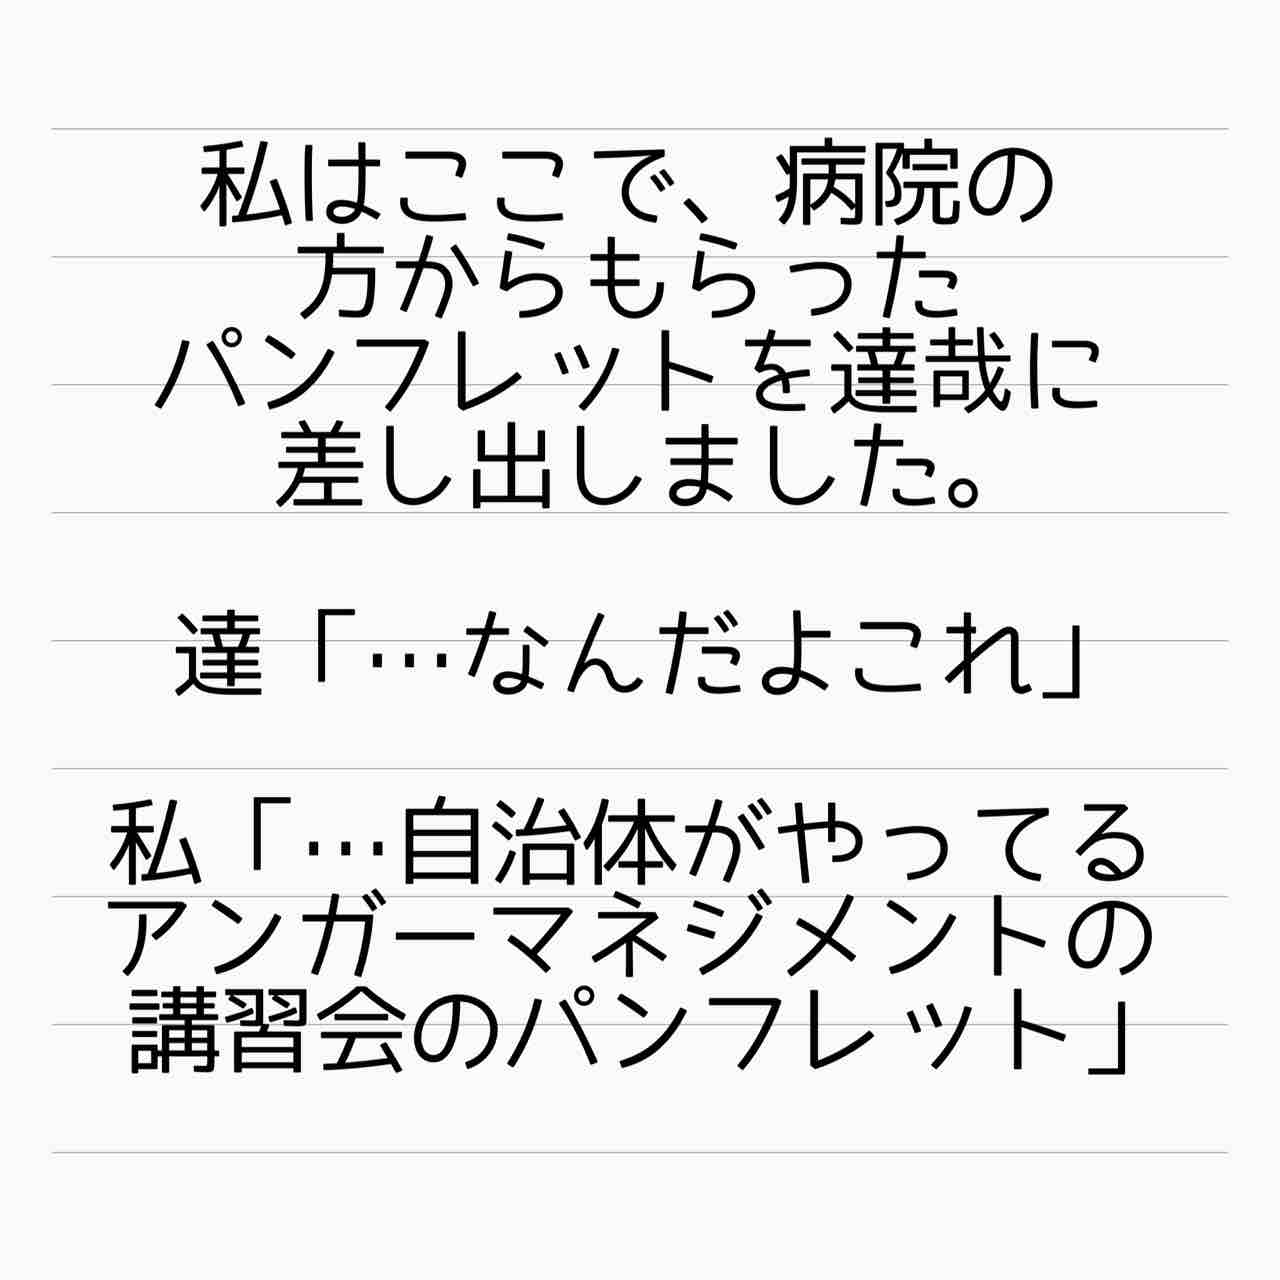 私はここで、病院の
方からもらった
パンフレットを達哉に
差し出しました。
達「…なんだよこれ」
私「…自治体がやってる
アンガーマネジメントの
講習会のパンフレット」